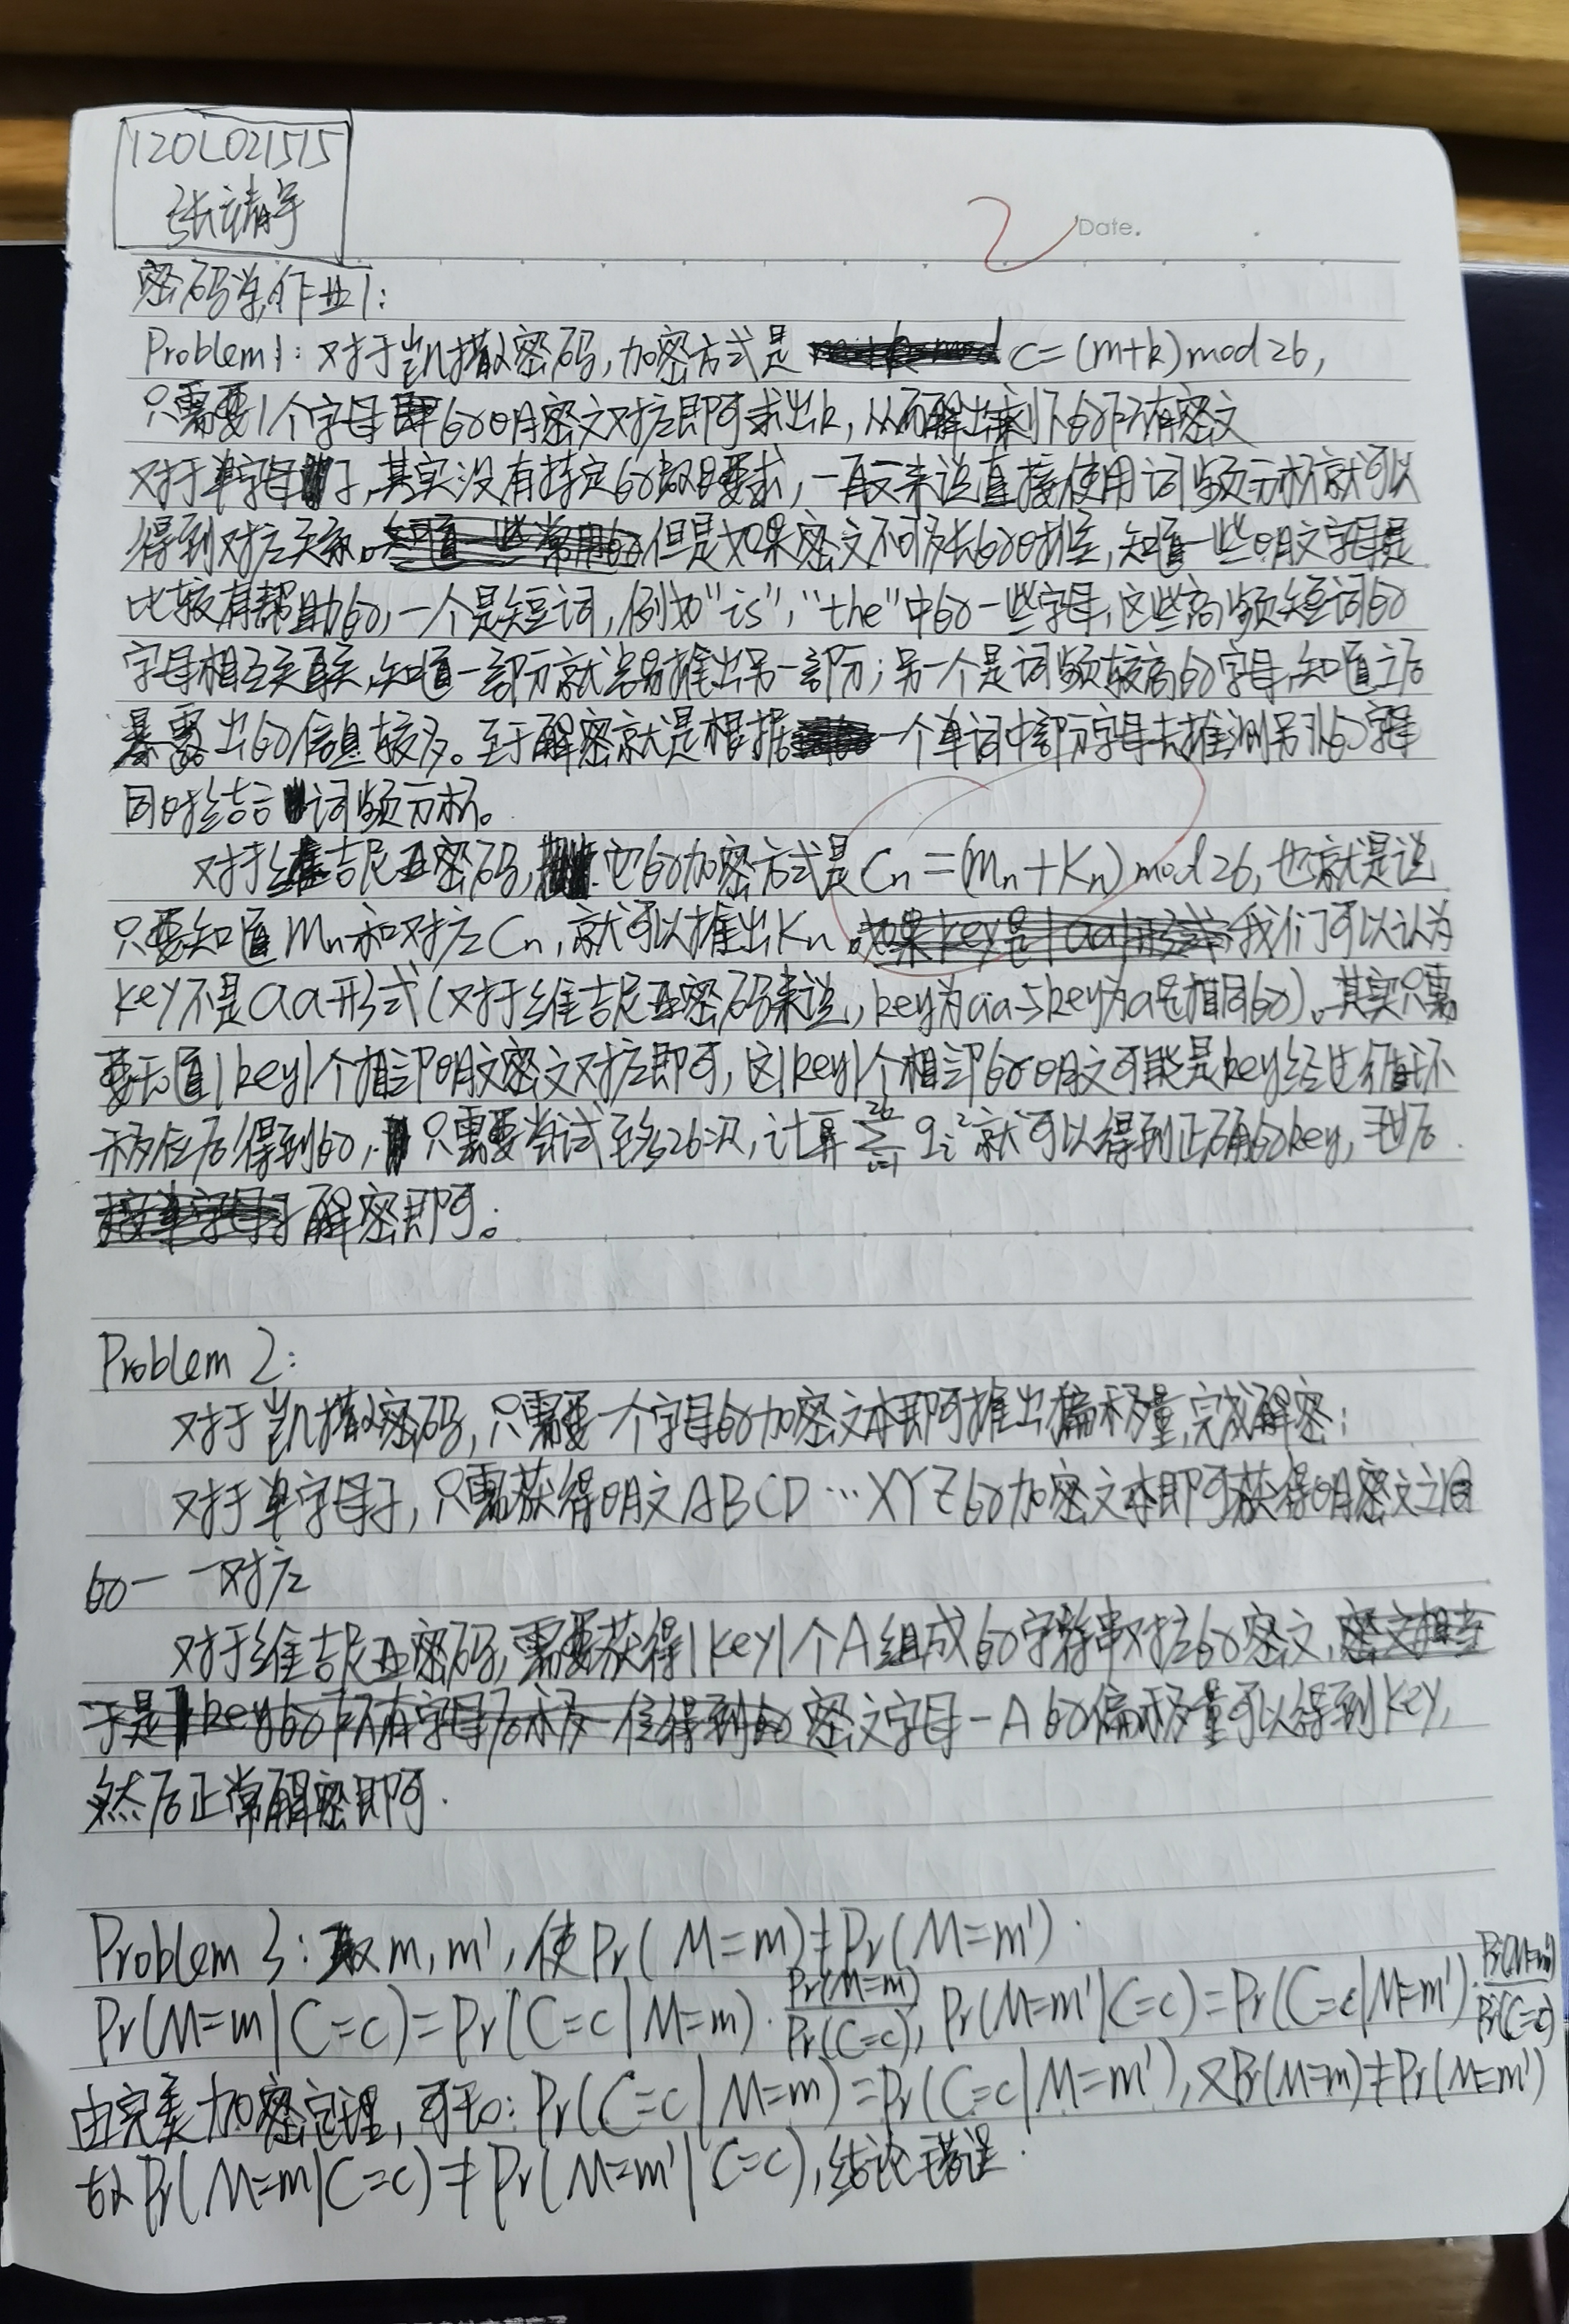 120L021515
张靖宇
Date.
密码学作业1:
Problem1: 对于凯撒密码,加密方式是 C=(m+k)mod26,
只需要1个字母的明密文对应即可求出k,从而解出剩下的所有密文
对于单字母,其实没有特定的数目要求,一般来说直接使用词频分析就可以
得到对应关系。但是如果密文不够长的时候,知道一些明文字母是
比较有帮助的,一个是短词,例如"is","the"中的一些字母,这些高频短词的
字母相互关联,知道一部分就容易推出另一部分;另一个是词频较高的字母,知道之后
暴露出的信息较多。至于解密就是根据一个单词中部分字母去推测另外的字母
同时结合词频分析。
对于维吉尼亚密码,它的加密方式是Cn=(Mn+Kn)mod26,也就是说
只要知道Mn和对应Cn,就可以推出Kn。我们可以认为
key不是aa形式(对于维吉尼亚密码来说,key为aa与key为a是相同的)。其实只需
要知道|key|个相邻明文密文对应即可,这|key|个相邻的明文可能是key经过循环
移位后得到的,只需要尝试至多26次,计算∑ᵢ₌₁²⁶ qᵢ²就可以得到正确的key,然后
解密即可。
Problem 2:
对于凯撒密码,只需要一个字母的加密文本即可推出偏移量,完成解密;
对于单字母,只需获得明文ABCD…XYZ的加密文本即可获得明密文之间
的一一对应
对于维吉尼亚密码,需要获得|key|个A组成的字符串对应的密文,
密文字母-A的偏移量可以得到key,
然后正常解密即可.
Problem 3: 取m,m',使Pr(M=m)≠Pr(M=m').
Pr(M=m|C=c)=Pr(C=c|M=m)·Pr(M=m)/Pr(C=c), Pr(M=m'|C=c)=Pr(C=c|M=m')·Pr(M=m')/Pr(C=c)
由完美加密定理,可知:Pr(C=c|M=m)=Pr(C=c|M=m'),又Pr(M=m)≠Pr(M=m')
故Pr(M=m|C=c)≠Pr(M=m'|C=c),结论错误.